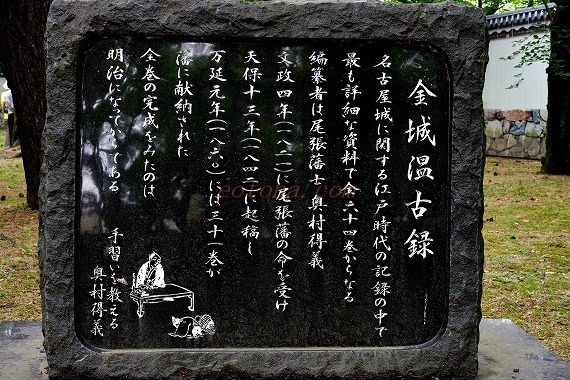 金城温古録
名古屋城に関する江戸時代の記録の中で
最も詳細な資料で全六十四巻からなる
編纂者は尾張藩士 奥村得義
文政四年(一八二一)に尾張藩の命を受け
天保十三年(一八四二)に起稿し
万延元年(一八六〇)には三十一巻が
藩に献納された
全巻の完成をみたのは
明治になってからである
手習いを教える
奥村得義